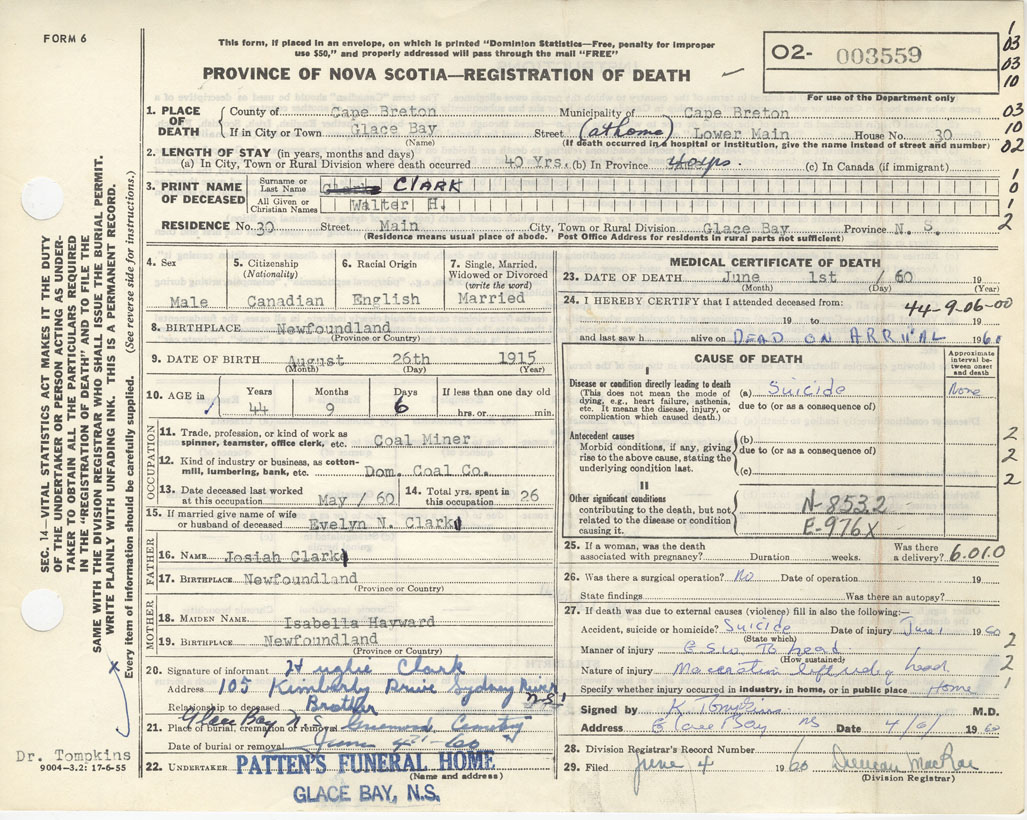 FORM 6
This form, if placed in an envelope, on which is printed "Dominion Statistics—Free, penalty for improper
use $50," and properly addressed will pass through the mail "FREE"
PROVINCE OF NOVA SCOTIA—REGISTRATION OF DEATH
02- 003559
For use of the Department only
1
03
03
10
03
10
02
1
0
1
2
1. PLACE OF DEATH
County of Cape Breton Municipality of Cape Breton
If in City or Town Glace Bay Street (at home) Lower Main House No. 30
(Name) (If death occurred in a hospital or Institution, give the name instead of street and number)
2. LENGTH OF STAY (in years, months and days)
(a) In City, Town or Rural Division where death occurred 40 Yrs. (b) In Province 40 yrs. (c) In Canada (if immigrant)
3. PRINT NAME OF DECEASED
Surname or Last Name CLARK
All Given or Christian Names Walter H.
RESIDENCE No. 30 Street Main City, Town or Rural Division Glace Bay Province N. S.
(Residence means usual place of abode. Post Office Address for residents in rural parts not sufficient)
4. Sex
Male
5. Citizenship
(Nationality)
Canadian
6. Racial Origin
English
7. Single, Married, Widowed or Divorced
(write the word)
Married
8. BIRTHPLACE Newfoundland
(Province or Country)
9. DATE OF BIRTH August 26th 1915
(Month) (Day) (Year)
10. AGE in
Years 44
Months 9
Days 6
If less than one day old
hrs. or min.
OCCUPATION
11. Trade, profession, or kind of work as
spinner, teamster, office clerk, etc. Coal Miner
12. Kind of industry or business, as cotton-
mill, lumbering, bank, etc. Dom. Coal Co.
13. Date deceased last worked
at this occupation May / 60
14. Total yrs. spent in
this occupation 26
15. If married give name of wife
or husband of deceased Evelyn N. Clark
FATHER
16. NAME Josiah Clark
17. BIRTHPLACE Newfoundland
(Province or Country)
MOTHER
18. MAIDEN NAME Isabella Hayward
19. BIRTHPLACE Newfoundland
(Province or Country)
20. Signature of informant Hughie Clark
Address 105 Kimberly Drive Sydney River N.S.
Relationship to deceased Brother
21. Place of burial, cremation or removal Glace Bay N.S. Greenwood
Date of burial or removal June 4
22. UNDERTAKER PATTEN'S FUNERAL HOME
(Name and address)
GLACE BAY, N.S.
MEDICAL CERTIFICATE OF DEATH
23. DATE OF DEATH June 1st / 60 19
(Month) (Day) (Year)
24. I HEREBY CERTIFY that I attended deceased from:
44-9-06-00
19 to 19
and last saw h alive on DEAD ON ARRIVAL 1960
CAUSE OF DEATH
Approximate interval between onset and death
I
Disease or condition directly leading to death
(This does not mean the mode of
dying, e.g., heart failure, asthenia,
etc. It means the disease, injury, or
complication which caused death.)
(a) Suicide None
due to (or as a consequence of)
Antecedent causes
Morbid conditions, if any, giving
rise to the above cause, stating the
underlying condition last.
(b)
due to (or as a consequence of)
(c)
2
2
2
II
Other significant conditions
contributing to the death, but not
related to the disease or condition
causing it.
N-853.2
E-976X
25. If a woman, was the death
associated with pregnancy? Duration weeks. Was there
a delivery? 6.01.0
26. Was there a surgical operation? No Date of operation 19
State findings Was there an autopsy?
27. If death was due to external causes (violence) fill in also the following:—
Accident, suicide or homicide? Suicide Date of injury June 1 1960
(State which)
Manner of injury G S W To head
(How sustained)
Nature of injury Maceration left side head
Specify whether injury occurred in industry, in home, or in public place Home
2
2
1
Signed by K Tompkins M.D.
Address Glace Bay NS Date 1960
28. Division Registrar's Record Number
29. Filed June 4 1960 Duncan MacRae
(Division Registrar)
SEC. 14—VITAL STATISTICS ACT MAKES IT THE DUTY
OF THE UNDERTAKER OR PERSON ACTING AS UNDER-
TAKER TO OBTAIN ALL THE PARTICULARS REQUIRED
IN THE "REGISTRATION OF DEATH" AND TO FILE THE
SAME WITH THE DIVISION REGISTRAR WHO SHALL ISSUE THE BURIAL PERMIT.
WRITE PLAINLY WITH UNFADING INK. THIS IS A PERMANENT RECORD.
Every item of information should be carefully supplied. (See reverse side for instructions.)
x
Dr. Tompkins
9004-3.2: 17-6-55